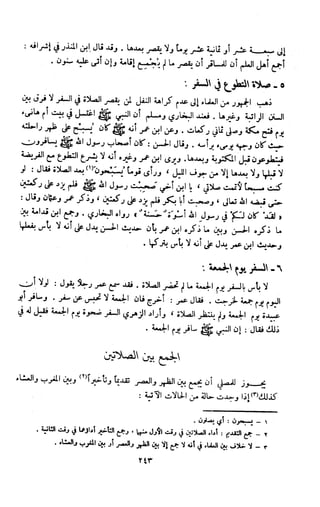 إلى سبعة عشر أو ثمانية عشر يوماً ولا يقصر بعدها . وقد قال ابن المنذر في إشرافه :
أجمع أهل العلم أن للمسافر أن يقصر ما لم يُجمِع إقامة وإن أتى عليه سنون .
٥ - صلاة التطوع في السفر :
ذهب الجمهور من العلماء إلى عدم كراهة النفل لمن يقصر الصلاة في السفر لا فرق بين
السنن الراتبة وغيرها . فعند البخاري ومسلم أن النبي ﷺ اغتسل في بيت أم هانىء
يوم فتح مكة وصلى ثماني ركعات . وعن ابن عمر أنه ﷺ كان يُسبِّح على ظهر راحلته
حيث كان وجهه يومىء برأسه . وقال الحسن : كان أصحاب رسول الله ﷺ يسافرون
فيتطوعون قبل المكتوبة وبعدها . ويرى ابن عمر وغيره أنه لا يشرع التطوع مع الفريضة
لا قبلها ولا بعدها إلا من جوف الليل ، ورأى قوماً يسبحون(١) بعد الصلاة فقال : لو
كنت مسبحاً لأتممت صلاتي ، يا ابن أخي صحبت رسول الله ﷺ فلم يزد على ركعتين
حتى قبضه الله تعالى ، وصحبت أبا بكر فلم يزد على ركعتين ، وذكر عمر وعثمان وقال :
« لقد كان لكم في رسول الله أسوة حسنة » رواه البخاري . وجمع ابن قدامة بين
ما ذكره الحسن وبين ما ذكره ابن عمر بأن حديث الحسن يدل على أنه لا بأس بفعلها
وحديث ابن عمر يدل على أنه لا بأس بتركها .
٦ - السفر يوم الجمعة :
لا بأس بالسفر يوم الجمعة ما لم تحضر الصلاة . فقد سمع عمر رجلاً يقول : لولا أن
اليوم يوم جمعة لخرجت . فقال عمر : أخرج فان الجمعة لا تحبس عن سفر . وسافر أبو
عبيدة يوم الجمعة ولم ينتظر الصلاة ، وأراد الزهري السفر ضحوة يوم الجمعة فقيل له في
ذلك فقال : إن النبي ﷺ سافر يوم الجمعة .
الجمع بين الصلاتين
يجوز للمصلي أن يجمع بين الظهر والعصر تقديماً وتأخيراً(٢) وبين المغرب والعشاء
كذلك(٣) إذا وجدت حالة من الحالات الآتية :
١ - يسبحون : أي يصلون .
٢ - جمع التقديم : أداء الصلاتين في وقت الأولى منهما ، وجمع التأخير أداؤهما في وقت الثانية .
٣ - لا خلاف بين العلماء في أنه لا جمع إلا بين الظهر والعصر أو بين المغرب والعشاء .
٢٤٣